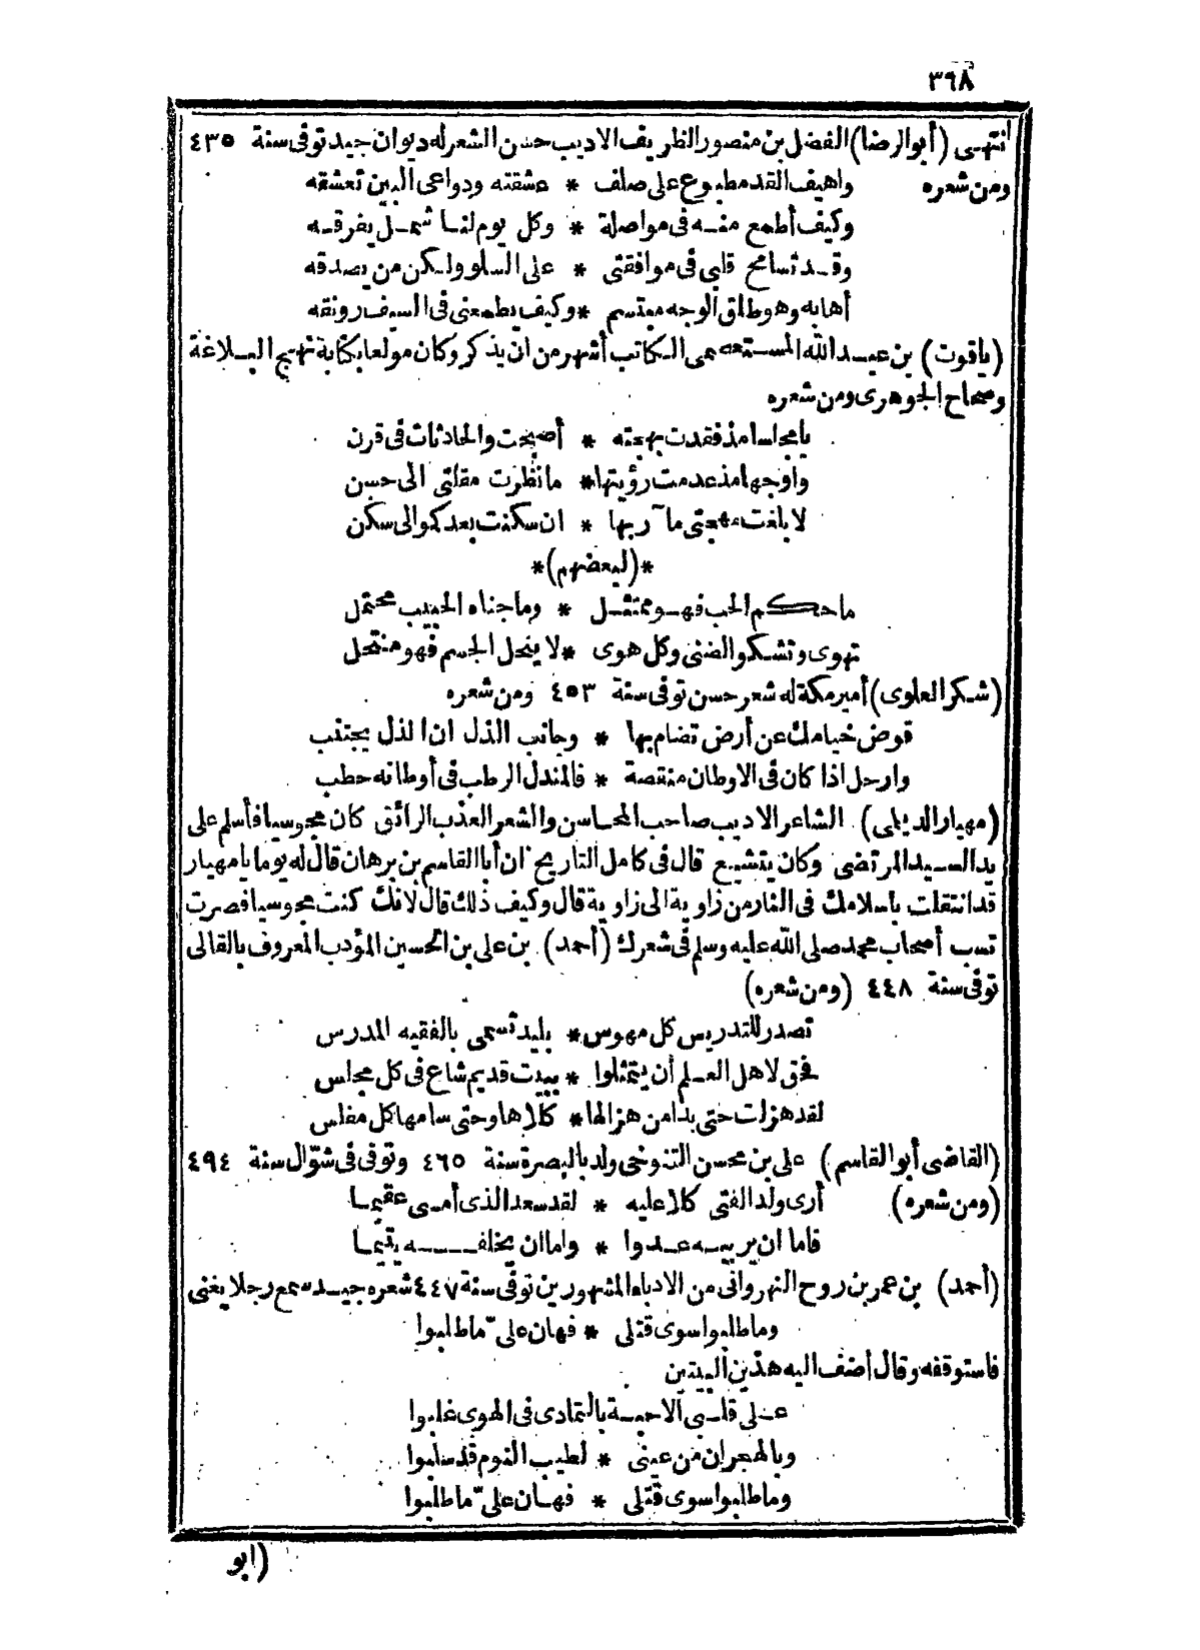 ٣٩٨
انتهى (أبو الرضا) الفضل بن منصور الظريف الاديب حسن الشعر له ديوان جيد توفى سنة ٤٣٥
ومن شعره واهيف القد مطبوع على صلف * عشقته ودواعى البين تعشقه
وكيف أطمع منه فى مواصلة * وكل يوم لنا شمل يفرقه
وقد تسامح قلبى فى موافقتى * على السلو ولكن من يصدقه
أهابه وهو طلق الوجه مبتسم * وكيف يطمعنى فى السيف رونقه
(ياقوت) بن عبد الله المستعصمى الكاتب أشهر من ان يذكر وكان مولعا بكتابة نهج البلاغة
وصحاح الجوهرى ومن شعره
يا مجلسا مذ فقدت بهجته * أصبحت والحادثات فى قرن
واوجها مذ عدمت رؤيتها * ما نظرت مقلتى الى حسن
لا بلغت مهجتى مآربها * ان سكنت بعدكمو الى سكن
*(لبعضهم)*
ما حكم الحب فهو ممتثل * وما جناه الحبيب محتمل
تهوى وتشكو الضنى وكل هوى * لا ينحل الجسم فهو منتحل
(شكر العلوى) أمير مكة له شعر حسن توفى سنة ٤٥٣ ومن شعره
قوض خيامك عن أرض تضام بها * وجانب الذل ان الذل يجتنب
وارحل اذا كان فى الاوطان منقصة * فالمندل الرطب فى أوطانه حطب
(مهيار الديلمى) الشاعر الاديب صاحب المحاسن والشعر العذب الرائق كان مجوسيا فأسلم على
يد السيد المرتضى وكان يتشيع قال فى كامل التاريخ ان أبا القاسم بن برهان قال له يوما يا مهيار
قد انتقلت باسلامك فى النار من زاوية الى زاوية قال وكيف ذلك قال لانك كنت مجوسيا فصرت
تسب أصحاب محمد صلى الله عليه وسلم فى شعرك (أحمد) بن على بن الحسين المؤدب المعروف بالقالى
توفى سنة ٤٤٨ (ومن شعره)
تصدر للتدريس كل مهوس * بليد تسمى بالفقيه المدرس
فحق لاهل العلم أن يتمثلوا * ببيت قديم شاع فى كل مجلس
لقد هزلت حتى بدا من هزالها * كلاها وحتى سامها كل مفلس
(القاضى أبو القاسم) على بن محسن التنوخى ولد بالبصرة سنة ٤٦٥ وتوفى فى شوّال سنة ٤٩٤
(ومن شعره) أرى ولد الفتى كلا عليه * لقد سعد الذى أمسى عقيما
فاما ان يربيه عدوا * واما ان يخلفه يتيما
(أحمد) بن عمر بن روح النهروانى من الادباء المشهورين توفى سنة ٤٤٧ شعره جيد سمع رجلا يغنى
وما طلبوا سوى قتلى * فهان علىّ ما طلبوا
فاستوقفه وقال أضف اليه هذين البيتين
على قلبى الاحبة بالتمادى فى الهوى غلبوا
وبالهجران من عينى * لطيب النوم قد سلبوا
وما طلبوا سوى قتلى * فهان علىّ ما طلبوا
(ابو